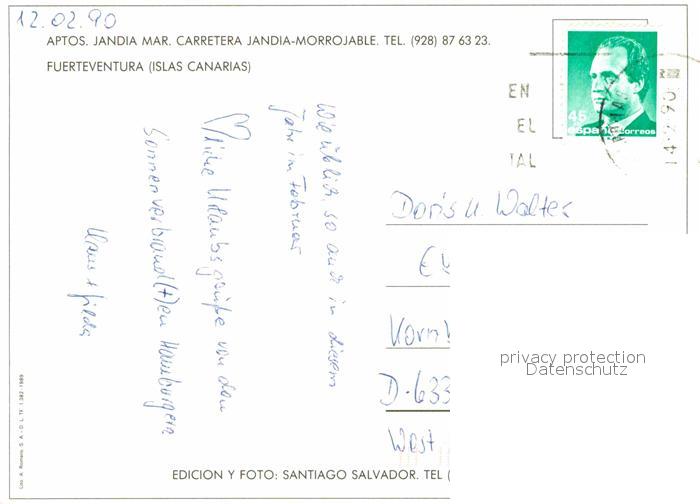 12.02.90
APTOS. JANDIA MAR. CARRETERA JANDIA-MORROJABLE. TEL. (928) 87 63 23.
FUERTEVENTURA (ISLAS CANARIAS)
Wie üblich, so auch in diesem
Jahr im Februar
♡liche Urlaubsgrüße von den
Sonnenverbrand(t)en Hamburgern
Klaus + Gilda
EN
EL
TAL
45
españa correos
14-2-90
Doris u. Walter
Korn
D-633
West
privacy protection
Datenschutz
EDICION Y FOTO: SANTIAGO SALVADOR. TEL (
Lito. A. Romero S. A. - D. L. TF. 1.382-1989